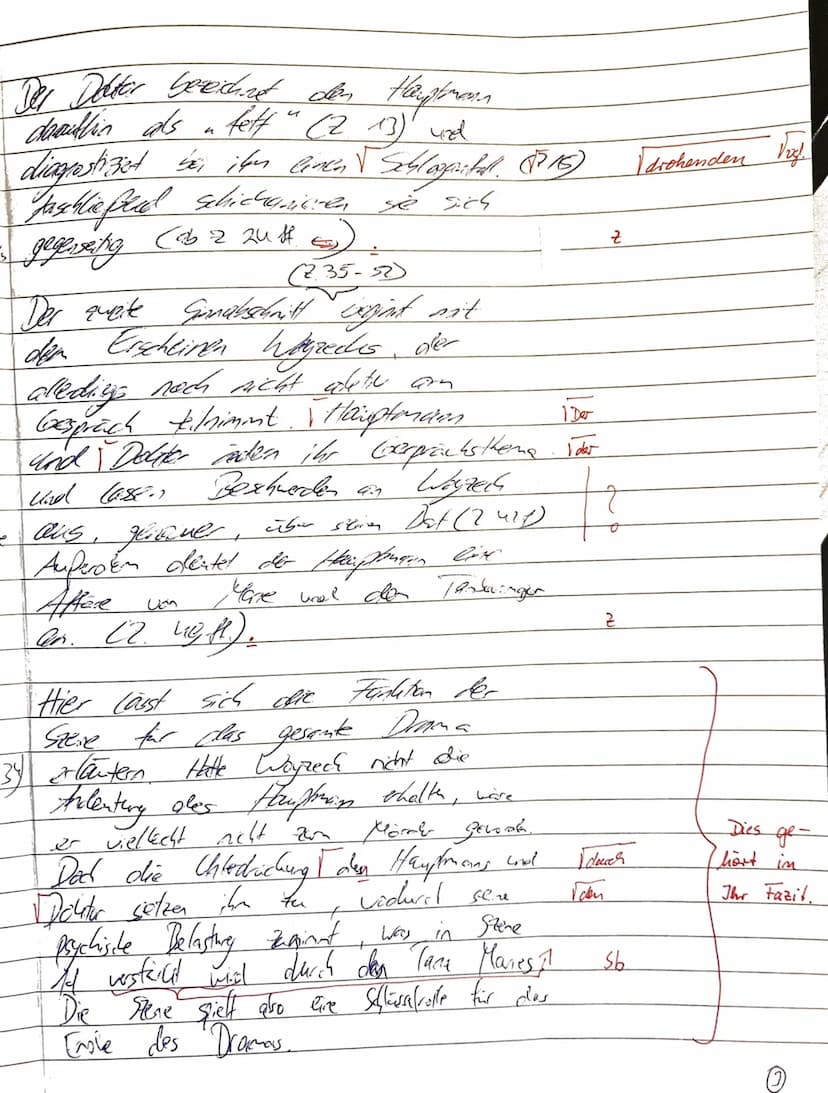 Der Doktor bezeichnet den Hauptmann
daraufhin als „fett“ (Z 13) und
diagnostiziert bei ihm einen √ Schlaganfall. (√Z 15) √drohenden √vgl.
Anschließend schickanieren sie sich
gegenseitig (ab Z 24 ff. ). z
(Z. 35-52)
Der zweite Sinnabschnitt beginnt mit
dem Erscheinen Woyzecks, der
allerdings noch nicht aktiv am
Gespräch teilnimmt. √ Hauptmann √Der
und √ Doktor ändern ihr Gesprächsthema √der
und lassen Beschwerden an Woyzeck ?
aus, genauer, über seinen (Z 41f)
Außerdem deutet der Hauptmann eine
Affäre von Marie und dem
an. (Z. 49 ff.). z
Hier lässt sich die Funktion der
Szene für das gesamte Drama
34) erläutern. Hätte Woyzeck nicht die
Andeutung des Hauptmann erhalten, wäre
er vielleicht nicht zum Mörder geworden. Dies ge-
Doch die Unterdrückung √ den Hauptmanns und √durch hört in
√ Doktor setzen ihm zu, wodurch seine √den Ihr Fazit.
psychische Belastung zunimmt, was in Szene
14 verstärkt wird durch den Tanz Maries. Sb
Die Szene spielt also eine Schlüsselrolle für das
Ende des Dramas.